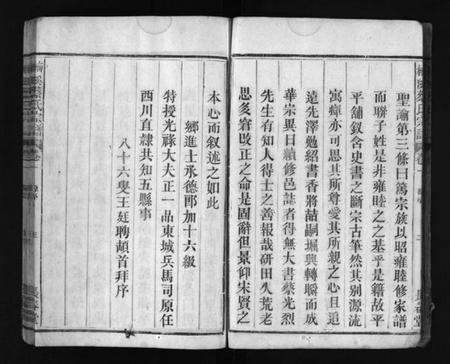 聖諭第三條曰篤宗族以昭雍睦修家譜
而聯子姓是非雍睦之之基乎是籍故平
平舖叙舍史書之斷宗古筆然其別源流
寓癉亦可思其所尊愛其所親之心且追
遠先澤勉紹書香將喆嗣堀興轉瞬而成
華宗異日續修邑誌者得無大書蔡光烈
先生有知人得士之善報哉硏田久荒老
思多窘改正之命是固辭但景仰宋賢之
本心而叙述之如此
鄉進士承德郎加十六級
特授光祿大夫正一品東城兵馬司原任
西川直隷共知五縣事
八十六叟王廷聘頓首拜序